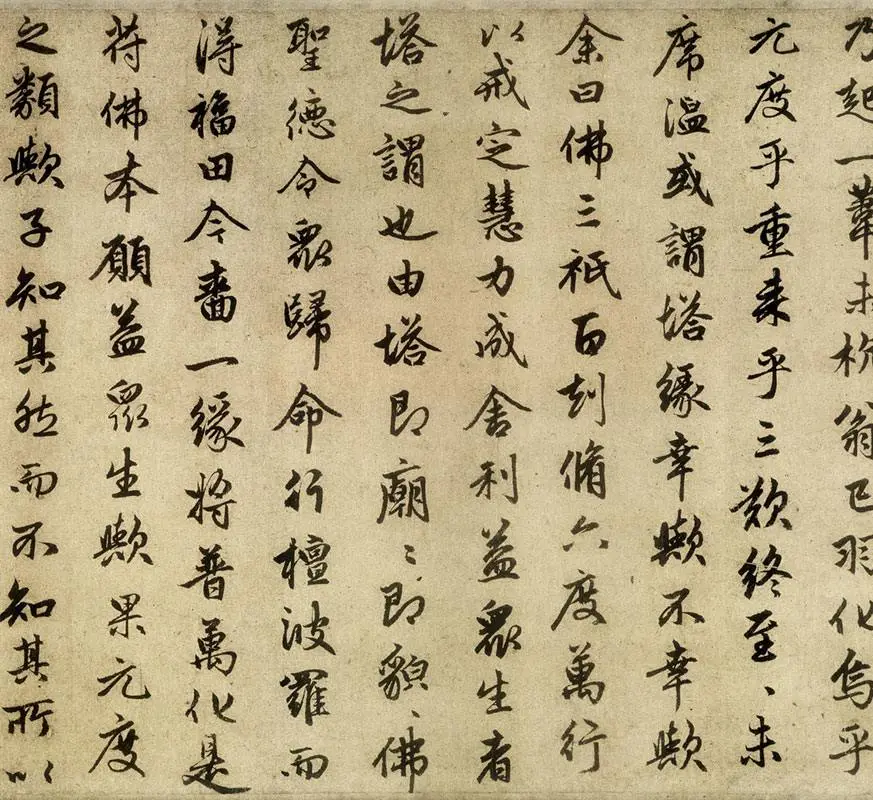 乃起一葦未杭翁已羽化烏乎
元度乎重来乎三歎終至〻未
席溫或謂塔緣幸歟不幸歟
余曰佛三祇百刼脩六度萬行
以戒定慧力成舍利益眾生者
塔之謂也由塔即廟〻即貌〻佛
聖德令眾歸命行檀波羅而
得福田今嗇一緣將普萬化是
符佛本願益眾生歟果元度
之類歟子知其然而不知其所以